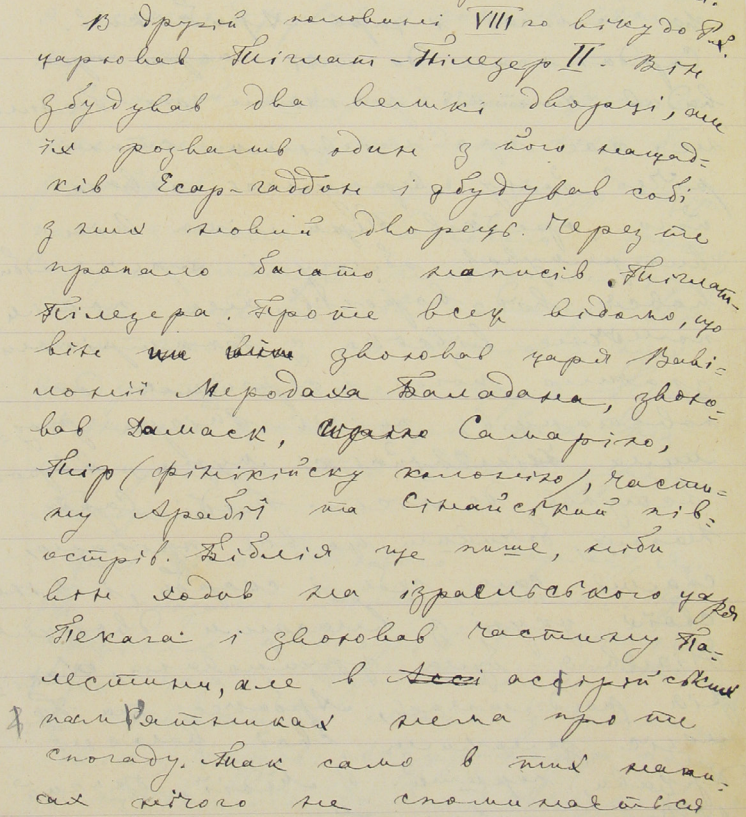 В другій половині VIII го віку до Р. Х.
царював Тіглат-Пілезер II. Він
збудував два великі дворці, але
їх розвалив один з його нащад=
ків Есар-гаддон і збудував собі
з них новий дворець. Через те
пропало багато написів Тіглат-
Пілезера. Проте всеж відомо, що
він звоював царя Вави=
лонії Меродаха Баладана, звою=
вав Дамаск, Самарію,
Тір (фінікійску колонію), части=
ну Арабії та Сінайський пів=
острів. Біблія ще пише, ніби
він ходив на ізраельського царя
Пекага і звоював частину Па=
лестини, але в ассірийських
памʼятниках нема про те
спогаду. Так само в тих напи=
сах нічого не споминається